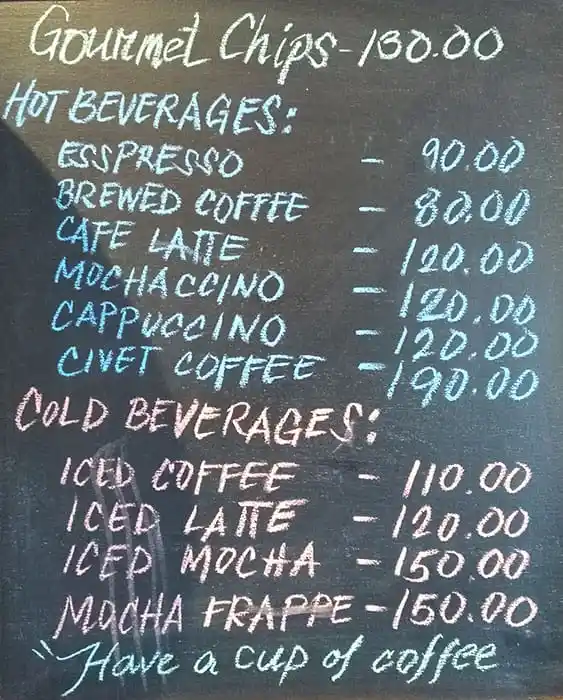 Gourmet Chips - 130.00
HOT BEVERAGES:
ESSPRESSO - 90.00
BREWED COFFEE - 80.00
CAFE LATTE - 120.00
MOCHACCINO - 120.00
CAPPUCCINO - 120.00
CIVET COFFEE - 190.00
COLD BEVERAGES:
ICED COFFEE - 110.00
ICED LATTE - 120.00
ICED MOCHA - 150.00
MOCHA FRAPPE - 150.00
"Have a cup of coffee